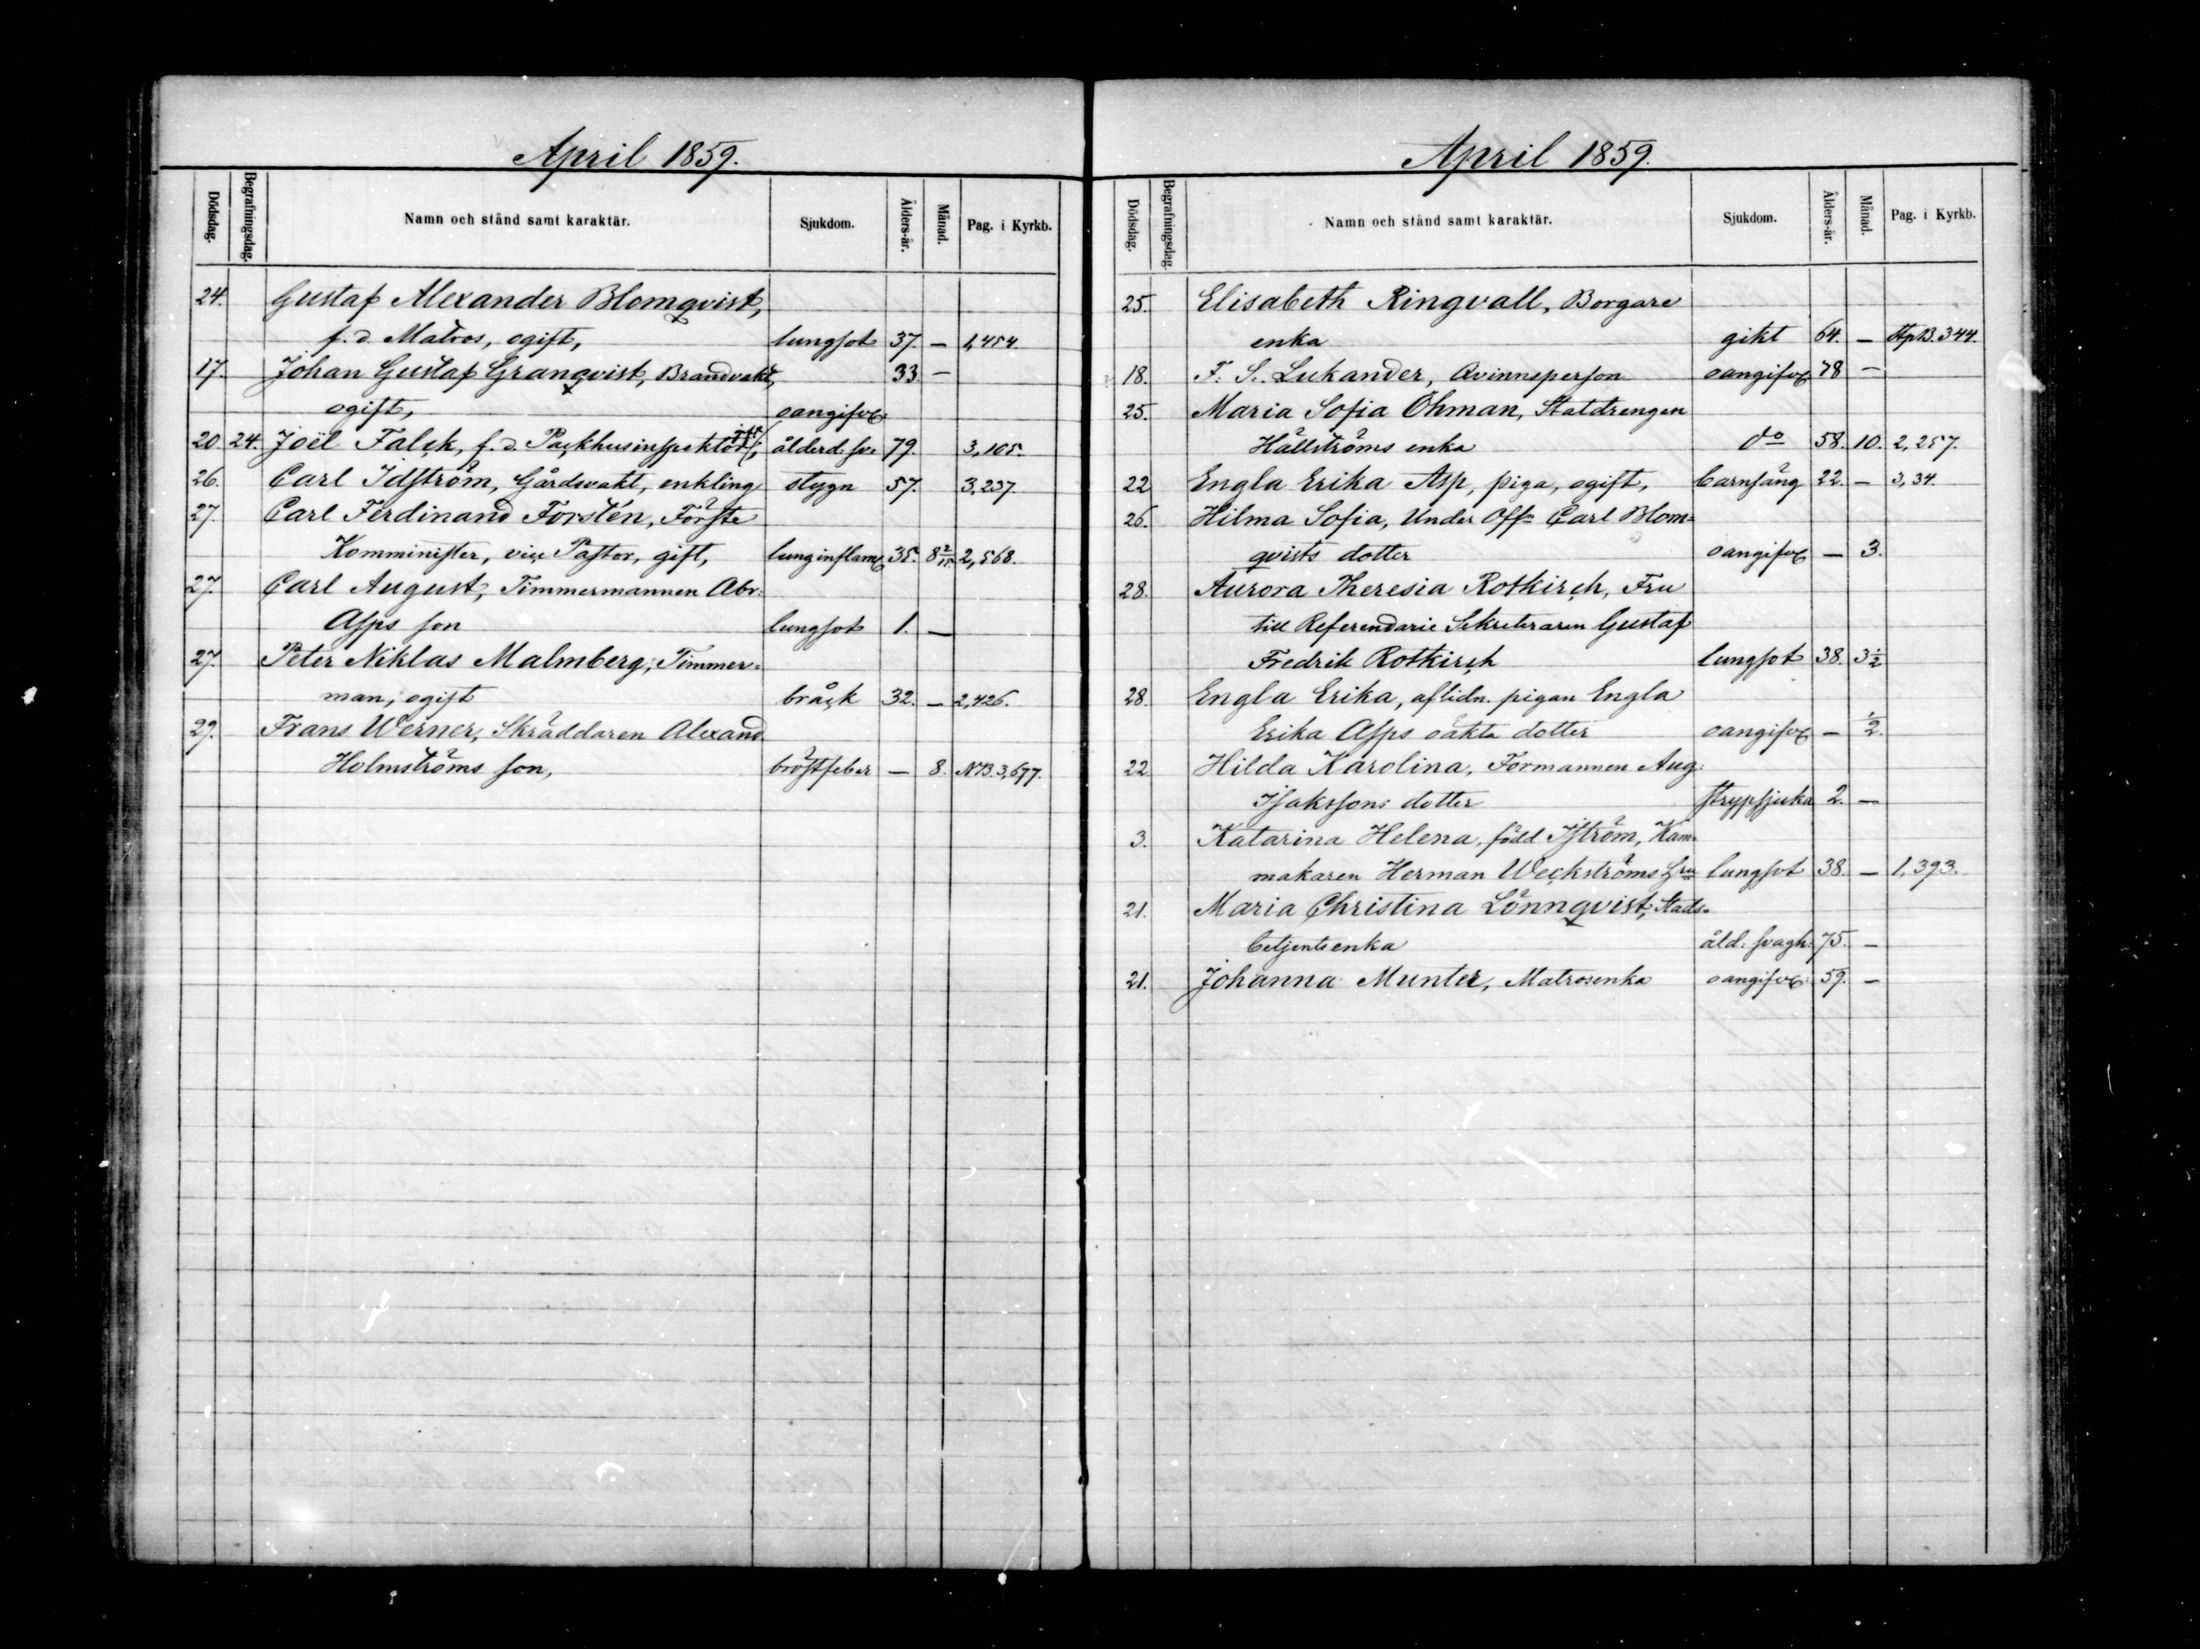 April 1859.
Dödsdag. Begrafningsdag. Namn och stånd samt karaktär. Sjukdom. Ålders-år. Månad. Pag. i Kyrkb.
24. Gustaf Alexander Blomqvist,
f. d. Matros, ogift, lungsot 37. — 1,454.
17. Johan Gustaf Granqvist, Brandvakt, 33. —
ogift, oangifvet:
20. 24. Joël Falck, f. d. Packhusinspektor, ålderd: sv: 79. 3,105.
26. Carl Idström, Gårdsvakt, enkling stygn 57. 3,237.
27. Carl Ferdinand Forstén, Förste
Komminister, vice Pastor, gift, lunginflam 35. 8 2/15. 2,568.
27. Carl August, Timmermannen Abr:
Asps son lungsot 1. —
27. Peter Niklas Malmberg, Timmer=
man, ogift bråck 32. — 2,426.
29. Frans Werner, Skräddaren Alexand.
Holmströms son, bröstfeber — 8. NB. 3,677.
April 1859.
Dödsdag. Begrafningsdag. Namn och stånd samt karaktär. Sjukdom. Ålders-år. Månad. Pag. i Kyrkb.
25. Elisabeth Ringvall, Borgare
enka gikt 64. — 344.
18. F. S. Lukander, Qvinnsperson oangifvet 78 —
25. Maria Sofia Öhman, Staldrengen
Hällströms enka do 58. 10. 2,257.
22 Engla Erika Asp, piga, ogift, barnsäng 22. — 3,34.
26. Hilma Sofia, Under Off. Carl Blom=
qvists dotter oangifvet — 3.
28. Aurora Theresia Rotkirch, Fru
till Referendarie Sekreteraren Gustaf
Fredrik Rotkirch lungsot 38. 3 1/2
28. Engla Erika, aflidn. pigan Engla
Erika Asps oäkta dotter oangifvet — 1/2.
22 Hilda Karolina, Förmannen Aug:
Isakssons dotter strypsjuka 2. —
3. Katarina Helena, född Iström, Kam=
makaren Herman Weckströms Hru lungsot 38. — 1,393.
21. Maria Christina Lönnqvist, Stads=
betjentsenka åld: svagh: 75. —
21. Johanna Munter, Matrosenka oangifvet: 59. —